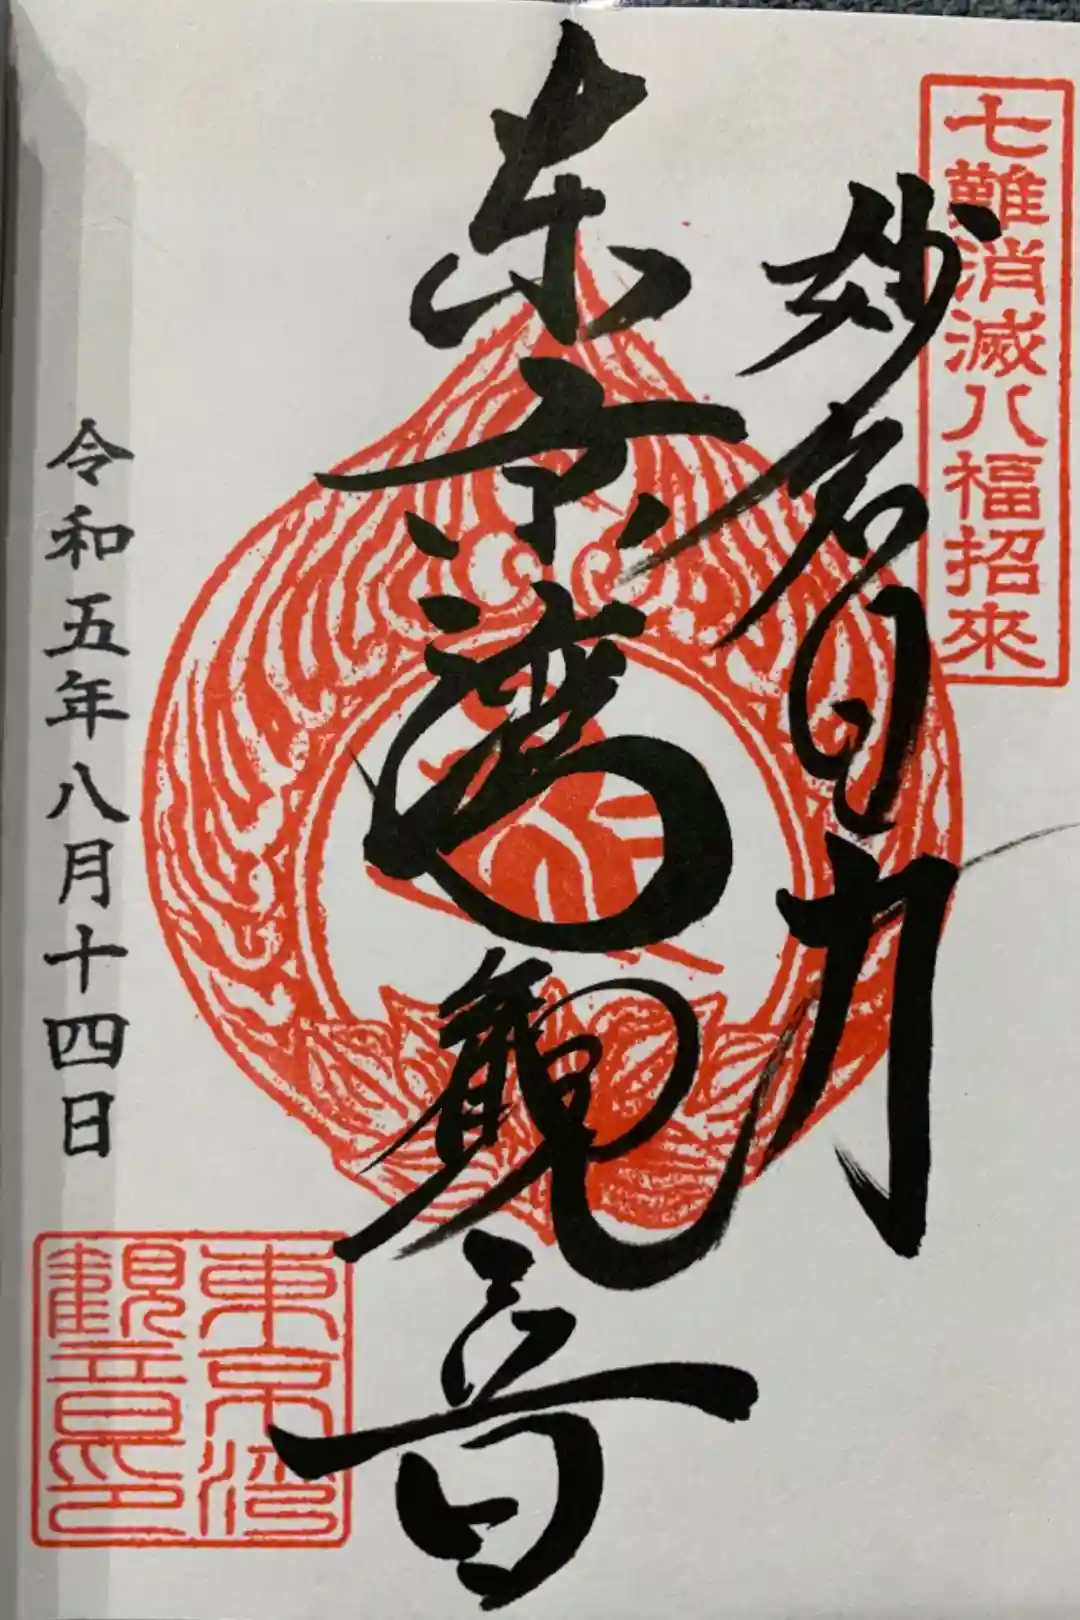 七難消滅八福招來
妙智力
東京湾観音
令和五年八月十四日
東京湾
観音印